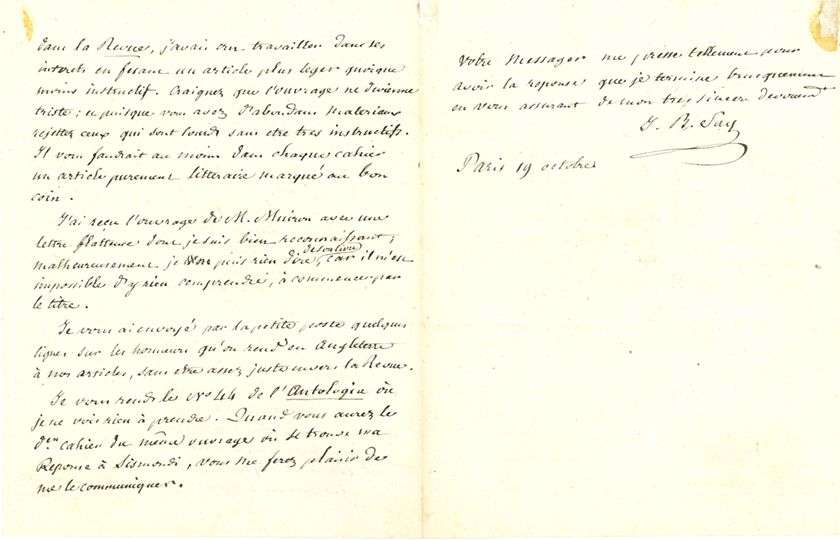 dans la Revue, j'avais cru travailler dans ses
interets en fesant un article plus leger quoique
moins instructif. Craignez que l'ouvrage ne devienne
triste ; et puisque vous avez d'abondans materiaux
rejettez ceux qui sont lourds sans etre tres instructifs.
Il vous faudrait au moins dans chaque cahier
un article purement litteraire marqué au bon
coin.
J'ai reçu l'ouvrage de M. Muiron avec une
lettre flatteuse dont je suis bien reconnaissant ;
malheureusement je ne puis rien dire de son livre, car il m'est
impossible d'y rien comprendre, à commencer par
le titre.
Je vous ai envoyé par la petite poste quelques
lignes sur les honneurs qu'on rend en Angleterre
à nos articles, sans etre assez juste envers la Revue.
Je vous rends le No 44 de l'Antologia où
je ne vois rien à prendre. Quand vous aurez le
cahier du même ouvrage où se trouve ma
Reponse à Sismondi, vous me ferez plaisir de
me le communiquer.
Votre messager me presse tellement pour
avoir la reponse que je termine brusquement
en vous assurant de mon tres sincere devouement
J. B. Say
Paris 19 octobre